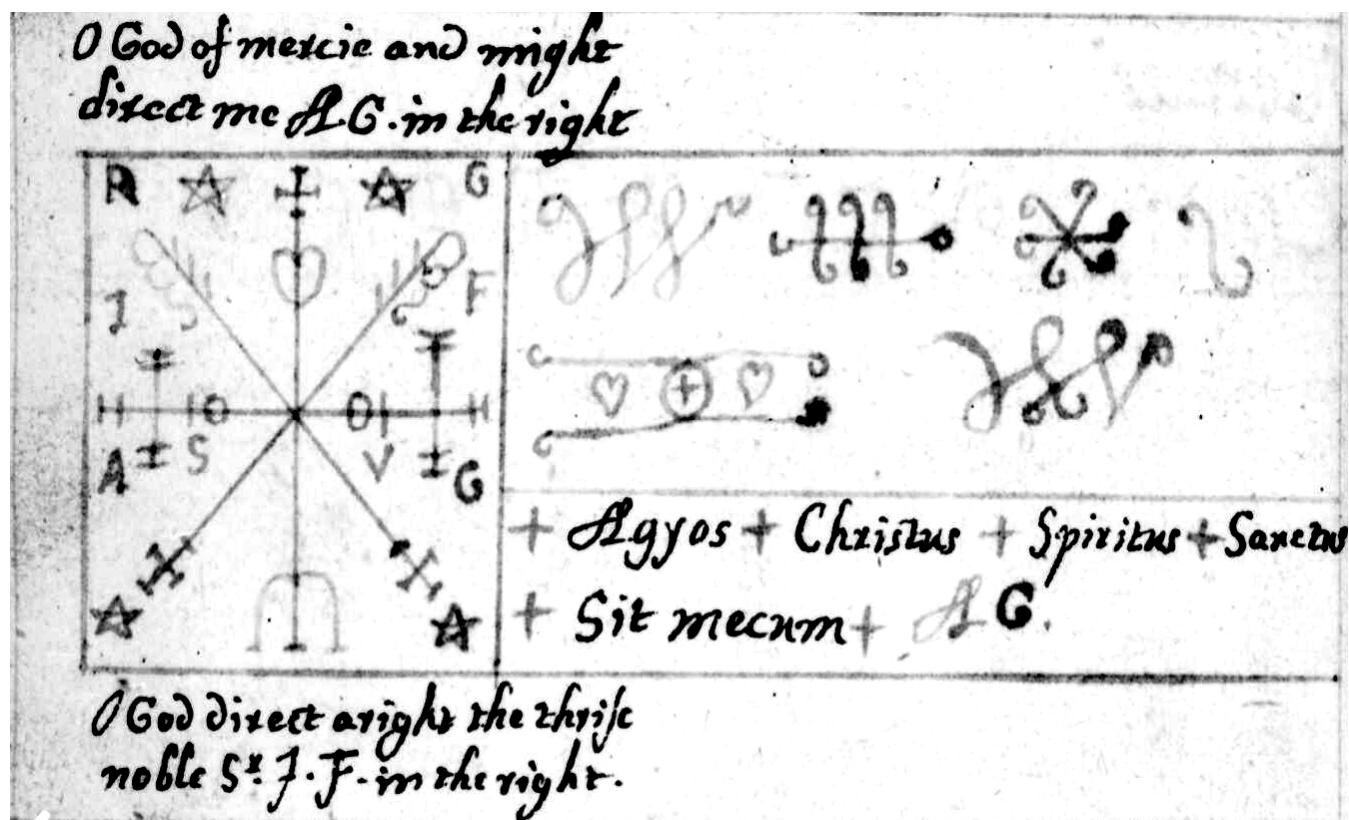 O God of mercie and might
direct me AG. in the right
R G
J F
H IO OI H
A S V G
+ Agyos + Christus + Spiritus + Sanctus
+ Sit mecum + AG.
O God direct aright the thrise
noble Sr. J. F. in the right.